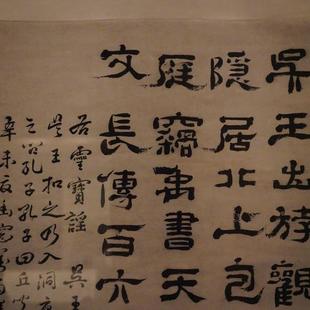 吳王出游觀
隱居北上包
庭竊禹書天
文長傳百六
靈寶謡 吳王
王扣之乃入洞庭
孔子孔子曰丘
辛未